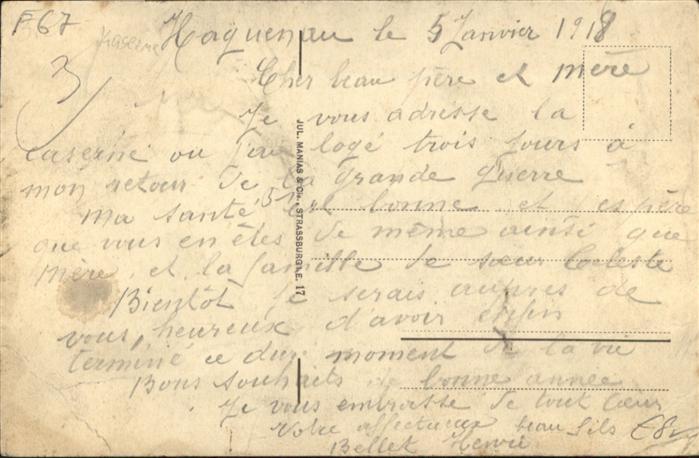 F67
Kaserne Haguenau le 5 Janvier 1918
3
Cher beau père et mère
Je vous adresse la
caserne ou j'ai logé trois jours à
mon retour de la grande guerre
Ma santé est bonne et espère
que vous en êtes de même ainsi que
mère et la famille de sœur Celeste
Bientôt je serais auprès de
vous, heureux d'avoir enfin
terminé ce dur moment de la vie
Bons souhaits de bonne année
Je vous embrasse de tout cœur
Votre affectueux beau fils
Bellet Henri
JUL. MANIAS & CIE., STRASSBURG I. E. 17